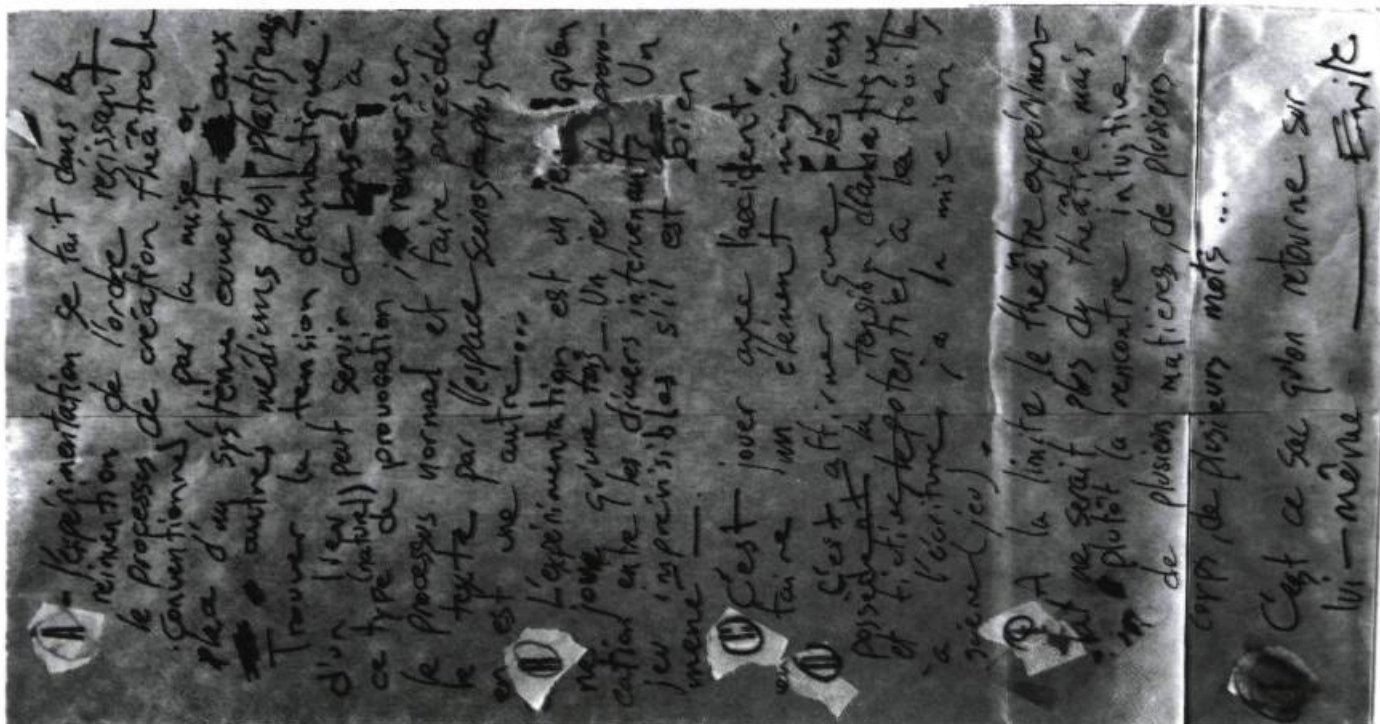 A - L'expérimentation se fait dans la
réinvention de l'ordre régissant
le processus de création théâtrale
conventionnel par la mise en
place d'un système ouvert aux
autres médiums plus plastiques
Trouver la tension dramatique
d'un lieu peut servir de base à
ce type de provocation ; renverser
le processus normal et faire précéder
le texte par l'espace scénographique
en est une autre...
B L'expérimentation est un jeu qu'on
ne joue qu'une fois — Un jeu de provo-
cation entre les divers intervenants Un
jeu imprévisible s'il est bien
mené —
C C'est jouer avec l'accident,
en faire un élément majeur.
D C'est affirmer que les lieux
possèdent la tension dramatique
et fictive potentiel à la fouille,
à l'écriture, à la mise en
scène (jeu).
E À la limite le théâtre expérimen-
tal ne serait plus du théâtre mais
plutôt la rencontre intuitive
de plusieurs matières, de plusieurs
corps, de plusieurs mots...
C'est ce sac qu'on retourne sur
lui-même — Emile